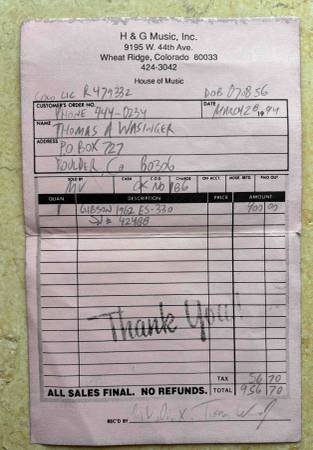 H & G Music, Inc.
9195 W. 44th Ave.
Wheat Ridge, Colorado 80033
424-3042
House of Music
LIC R479332 DOB 07.08.56
CUSTOMER'S ORDER NO. PHONE 444-0234 DATE MARCH 28 1994
NAME THOMAS A WASINGER
ADDRESS PO BOX 727
BOULDER, Co 80306
SOLD BY CASH C.O.D. CHARGE ON ACCT. MDSE. RETD. PAID OUT
MV CK NO 186
QUAN. DESCRIPTION PRICE AMOUNT
1 GIBSON 1962 ES-330
SN# 42488
Thank You!
TAX 56 70
ALL SALES FINAL. NO REFUNDS. TOTAL 956 70
REC'D BY